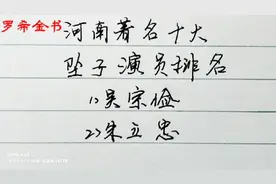 罗希全书
河南著名十大
坠子演员排名
1)吴宗俭
2)朱立忠